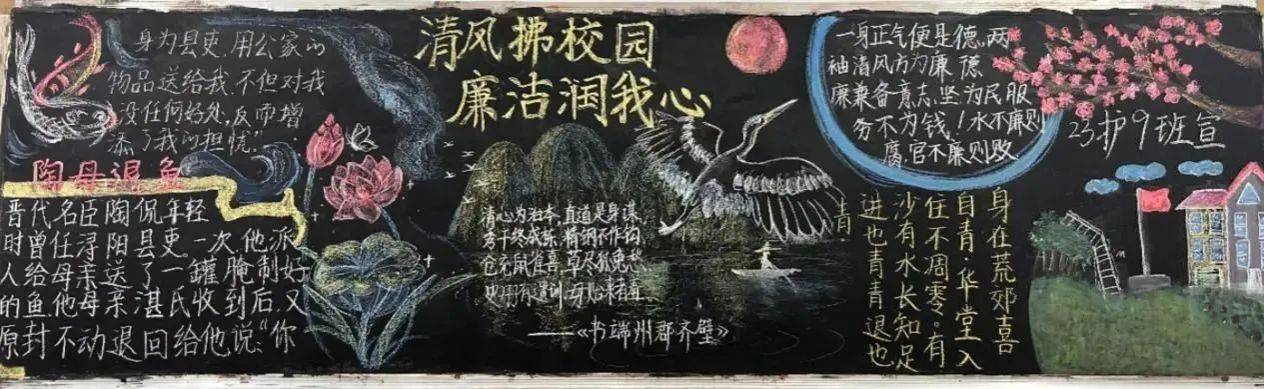 清风拂校园
廉洁润我心
陶母退鱼
晋代名臣陶侃年轻
时曾任浔阳县吏。一次,他派
人给母亲送了一罐腌制好
的鱼。他母亲湛氏收到后,又
原封不动退回给他说:“你
身为县吏,用公家的
物品送给我,不但对我
没任何好处,反而增
添了我的担忧。”
清心为治本,直道是身谋,
秀干终成栋,精钢不作钩,
仓充鼠雀喜,草尽狐兔愁
史册有遗训,毋贻来者羞
——《书端州郡齐壁》
一身正气便是德,两
袖清风方为廉 德
廉兼备意志坚,为民服
务不为钱!水不廉则
腐,官不廉则败
23护9班宣
身在荒郊喜
自青·华堂入
住不凋零。有
沙有水长知足
进也青青退也
青